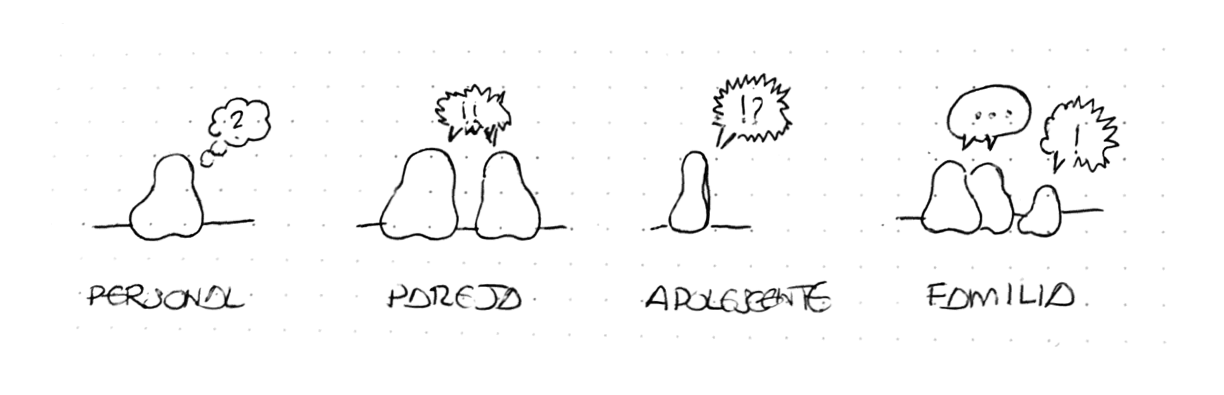 ?
!!
!?
...
!
PERSONAL
PAREJA
ADOLESCENTE
FAMILIA